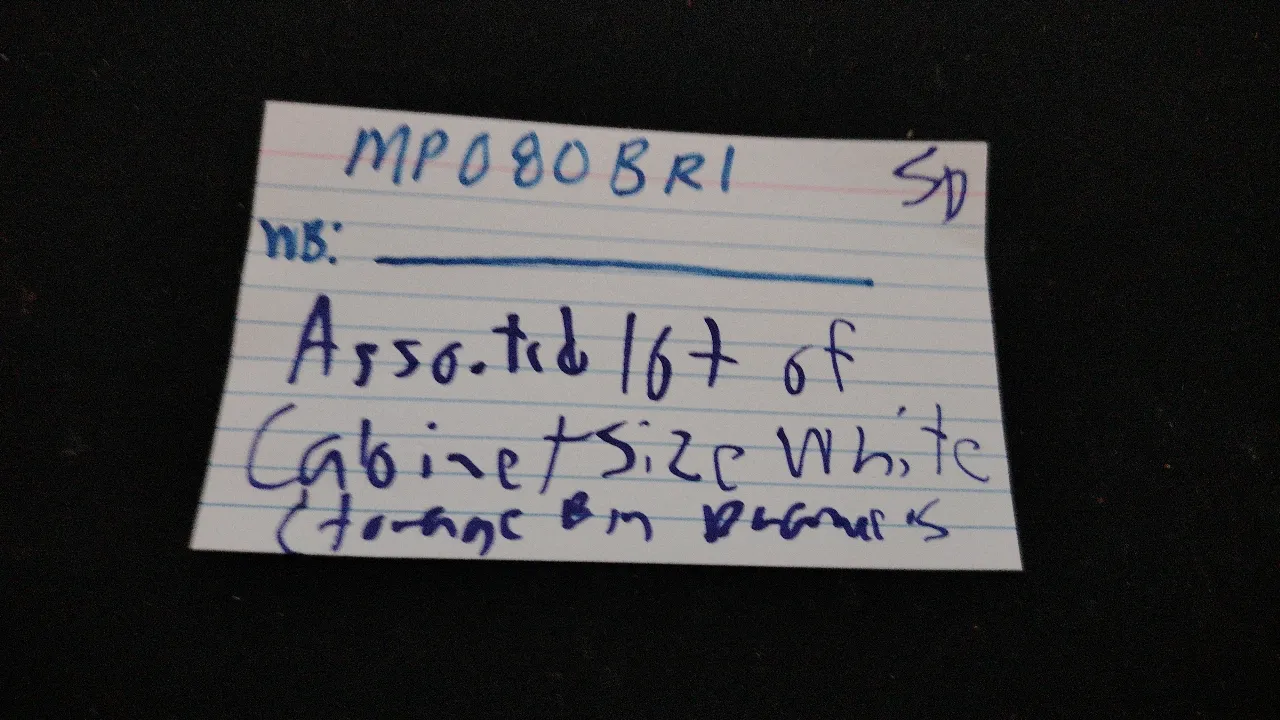 MP080BR1 SD
NB:
Assorted lot of
Cabinet Size White
Storage Bin Drawers